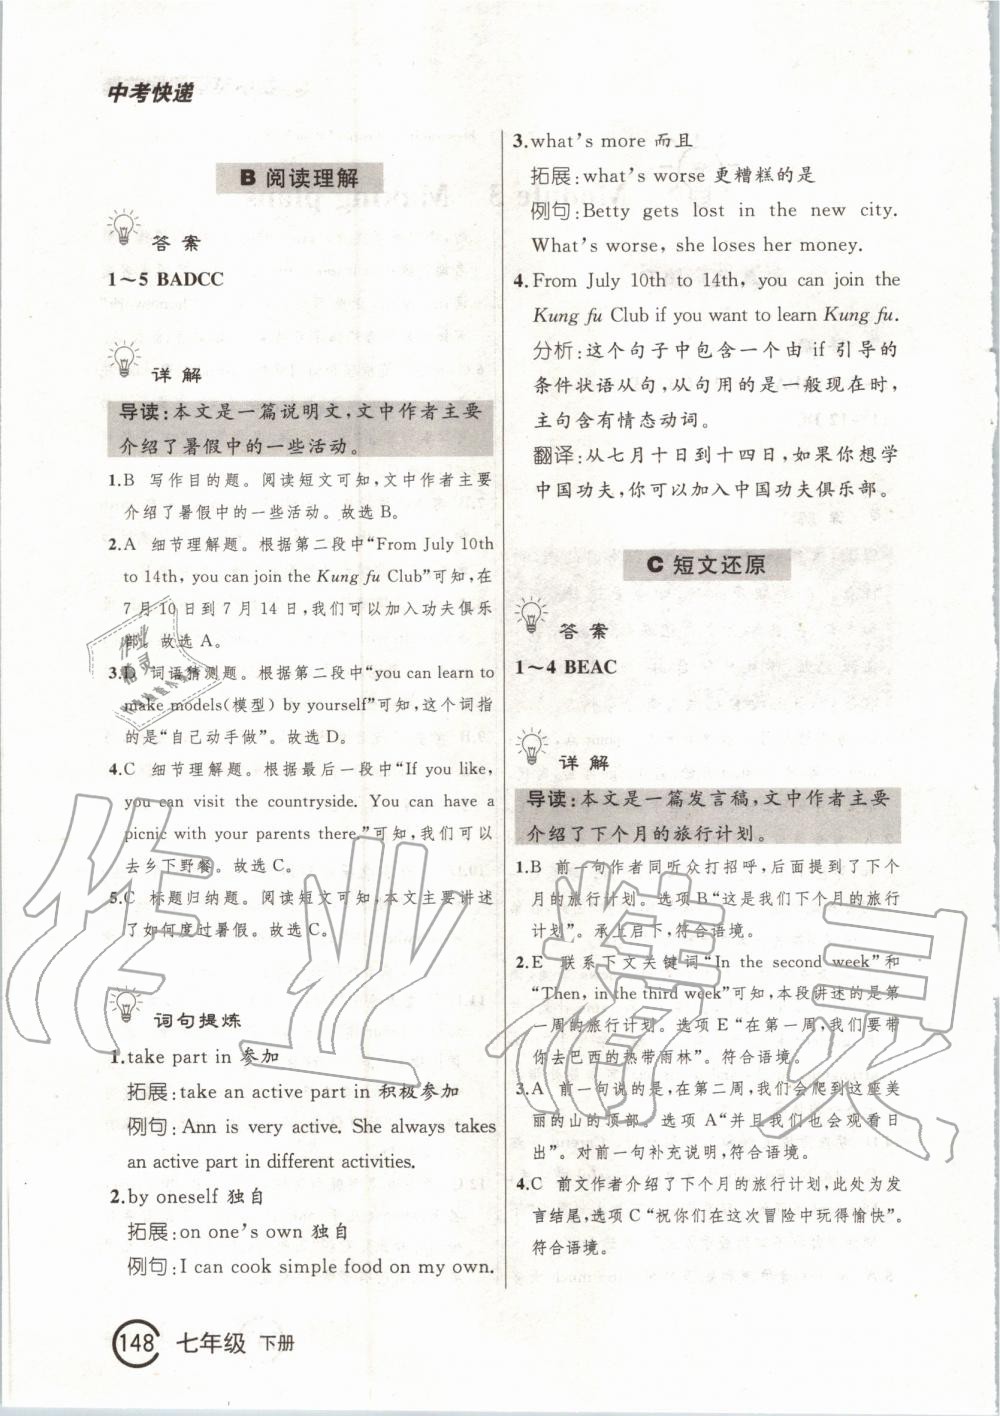 中考快递
B 阅读理解
答案
1～5 BADCC
详解
导读:本文是一篇说明文,文中作者主要
介绍了暑假中的一些活动。
1.B 写作目的题。阅读短文可知,文中作者主要
介绍了暑假中的一些活动。故选B。
2.A 细节理解题。根据第二段中“From July 10th
to 14th, you can join the Kung fu Club”可知,在
7月10日到7月14日,我们可以加入功夫俱乐
部。故选A。
3.D 词语猜测题。根据第二段中“you can learn to
make models(模型) by yourself”可知,这个词指
的是“自己动手做”。故选D。
4.C 细节理解题。根据最后一段中“If you like,
you can visit the countryside. You can have a
picnic with your parents there.”可知,我们可以
去乡下野餐。故选C。
5.C 标题归纳题。阅读短文可知,本文主要讲述
了如何度过暑假。故选C。
词句提炼
1.take part in 参加
拓展:take an active part in 积极参加
例句:Ann is very active. She always takes
an active part in different activities.
2.by oneself 独自
拓展:on one's own 独自
例句:I can cook simple food on my own.
3.what's more 而且
拓展:what's worse 更糟糕的是
例句:Betty gets lost in the new city.
What's worse, she loses her money.
4.From July 10th to 14th, you can join the
Kung fu Club if you want to learn Kung fu.
分析:这个句子中包含一个由 if 引导的
条件状语从句,从句用的是一般现在时,
主句含有情态动词。
翻译:从七月十日到十四日,如果你想学
中国功夫,你可以加入中国功夫俱乐部。
C 短文还原
答案
1～4 BEAC
详解
导读:本文是一篇发言稿,文中作者主要
介绍了下个月的旅行计划。
1.B 前一句作者同听众打招呼,后面提到了下个
月的旅行计划。选项B“这是我们下个月的旅行
计划”。承上启下,符合语境。
2.E 联系下文关键词“In the second week”和
“Then, in the third week”可知,本段讲述的是第
一周的旅行计划。选项E“在第一周,我们要带
你去巴西的热带雨林”。符合语境。
3.A 前一句说的是,在第二周,我们会爬到这座美
丽的山的顶部。选项A“并且我们也会观看日
出”。对前一句补充说明,符合语境。
4.C 前文作者介绍了下个月的旅行计划,此处为发
言结尾,选项C“祝你们在这次冒险中玩得愉快”。
符合语境。
148 七年级 下册
作业精灵